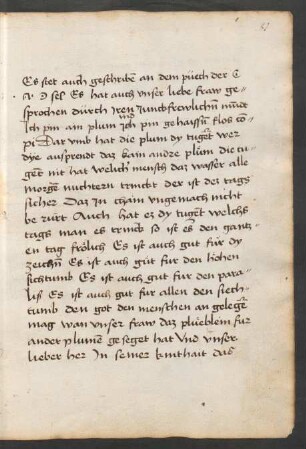 Es stet auch geschribñ an dem puech der E
v. D sel Es hat auch vnser liebe fraw ge
sprochen durch Iren Junckfrewlichñ mundt
Ich pin ain plum vnd pin gehaissñ flos cã
pi Dar vmb hat die plum dy tugẽt wer
dye ausprendt das kain andre plum die tu
gẽt nit hat welich mensch das wasser alle
morgẽ nuchtern trinckt der ist des tags
sicher Das In chain vngemach nicht
be rürt Auch hat es dy tugẽt welchs
tags man es trinck so ist es den gantz
en tag frölich Es ist auch gut für dy
zeichñ Es ist auch gut für den hohen
sichtumb Es ist auch gut für den para
lis Es ist auch gut für allen den siech
tumb den got den menschen an gelegẽ
mag wan vnser fraw das plüeblem für
ander plumẽ ge seget hat Vnd vnser
lieber her In seiner kinthait das